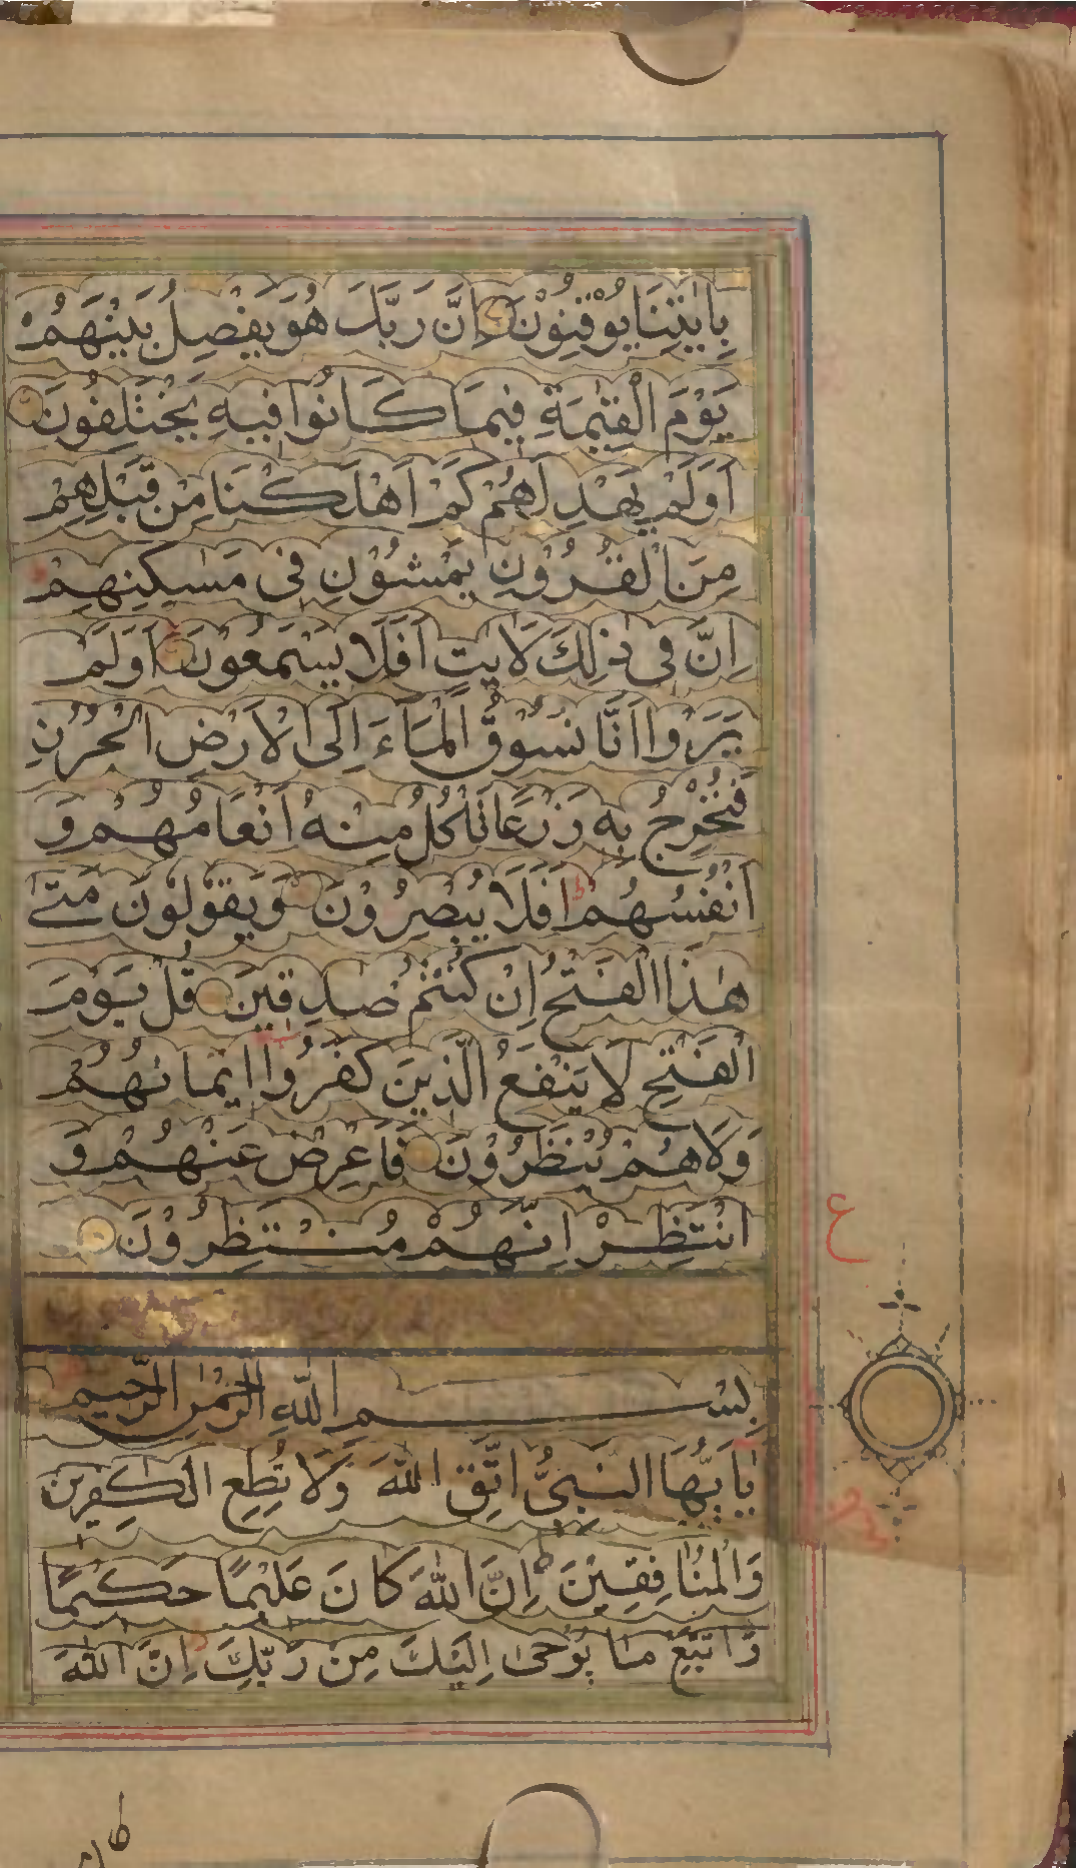 بِاٰيٰتِنَا يُوْقِنُوْنَ اِنَّ رَبَّكَ هُوَ يَفْصِلُ بَيْنَهُمْ
يَوْمَ الْقِيٰمَةِ فِيمَا كَانُوا فِيهِ يَخْتَلِفُونَ
اَوَلَمْ يَهْدِ لَهُمْ كَمْ اَهْلَكْنَا مِنْ قَبْلِهِمْ
مِنَ الْقُرُوْنِ يَمْشُوْنَ فِى مَسٰكِنِهِمْ
اِنَّ فِى ذٰلِكَ لَاٰيٰتٍ اَفَلَا يَسْمَعُوْنَ اَوَلَمْ
يَرَوْا اَنَّا نَسُوْقُ الْمَآءَ اِلَى الْاَرْضِ الْجُرُزِ
فَنُخْرِجُ بِهٖ زَرْعًا تَاْكُلُ مِنْهُ اَنْعَامُهُمْ وَ
اَنْفُسُهُمْ اَفَلَا يُبْصِرُوْنَ وَيَقُوْلُوْنَ مَتٰى
هٰذَا الْفَتْحُ اِنْ كُنْتُمْ صٰدِقِيْنَ قُلْ يَوْمَ
الْفَتْحِ لَا يَنْفَعُ الَّذِينَ كَفَرُوا اِيْمَانُهُمْ
وَلَا هُمْ يُنْظَرُوْنَ فَاَعْرِضْ عَنْهُمْ وَ
انْتَظِرْ اِنَّهُمْ مُنْتَظِرُوْنَ
ع
بِسْمِ اللّٰهِ الرَّحْمٰنِ الرَّحِيمِ
يٰاَيُّهَا النَّبِىُّ اتَّقِ اللّٰهَ وَلَا تُطِعِ الْكٰفِرِينَ
وَالْمُنَافِقِيْنَ اِنَّ اللّٰهَ كَانَ عَلِيْمًا حَكِيْمًا
وَاتَّبِعْ مَا يُوْحٰى اِلَيْكَ مِنْ رَبِّكَ اِنَّ اللّٰهَ